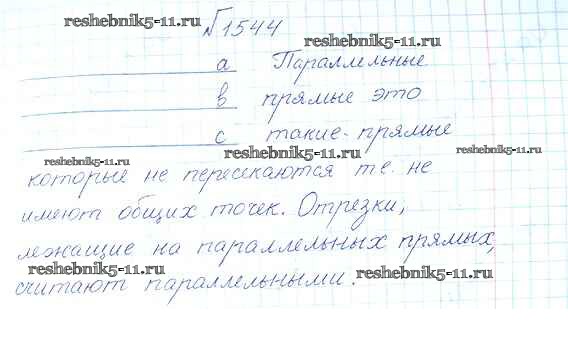 №1544
reshebnik5-11.ru
reshebnik5-11.ru
a Параллельные
reshebnik5-11.ru
b прямые это
c такие прямые
reshebnik5-11.ru reshebnik5-11.ru reshebnik5-11.ru
которые не пересекаются т.е. не
имеют общих точек. Отрезки,
лежащие на параллельных прямых,
reshebnik5-11.ru reshebnik5-11.ru
считают параллельными.